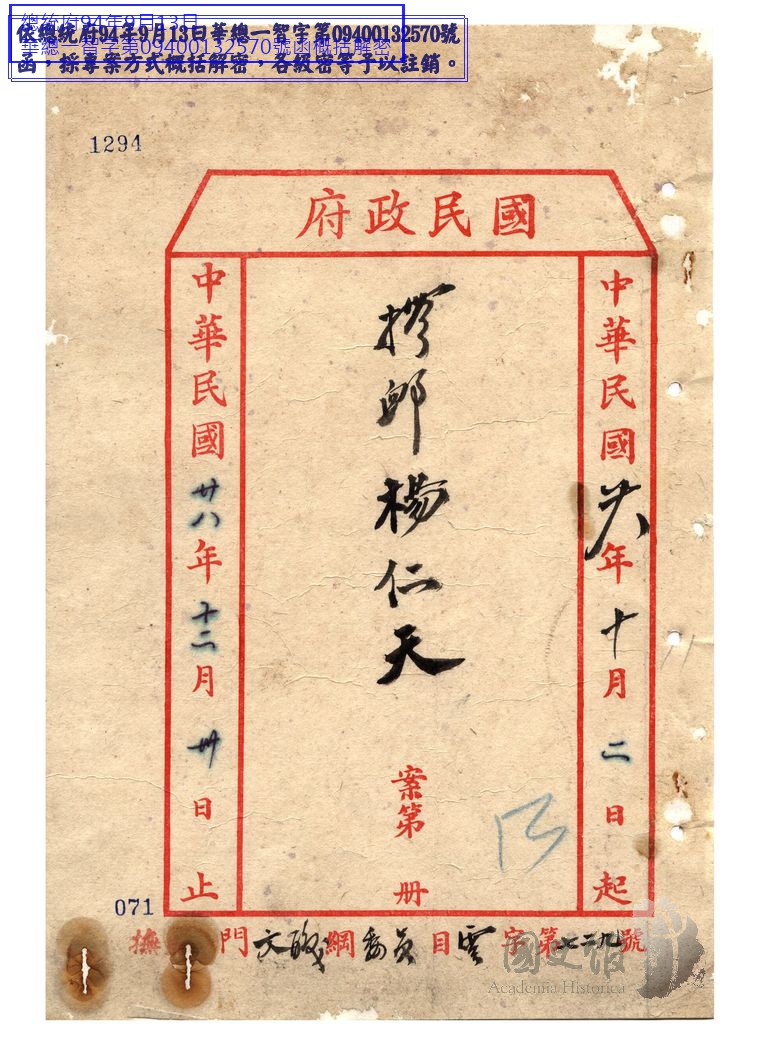 總統府94年9月13日
華總一智字第09400132570號函概括解密
依總統府94年9月13日華總一智字第09400132570號
函,採專案方式概括解密,各級密等予以註銷。
1294
國民政府
中華民國 廿八年十月二日起
撫卹楊仁天
案第 册
中華民國廿八年十二月卅日止
071
撫 門文職綱委員目雲字第七二九號
國史館
Academia Historica